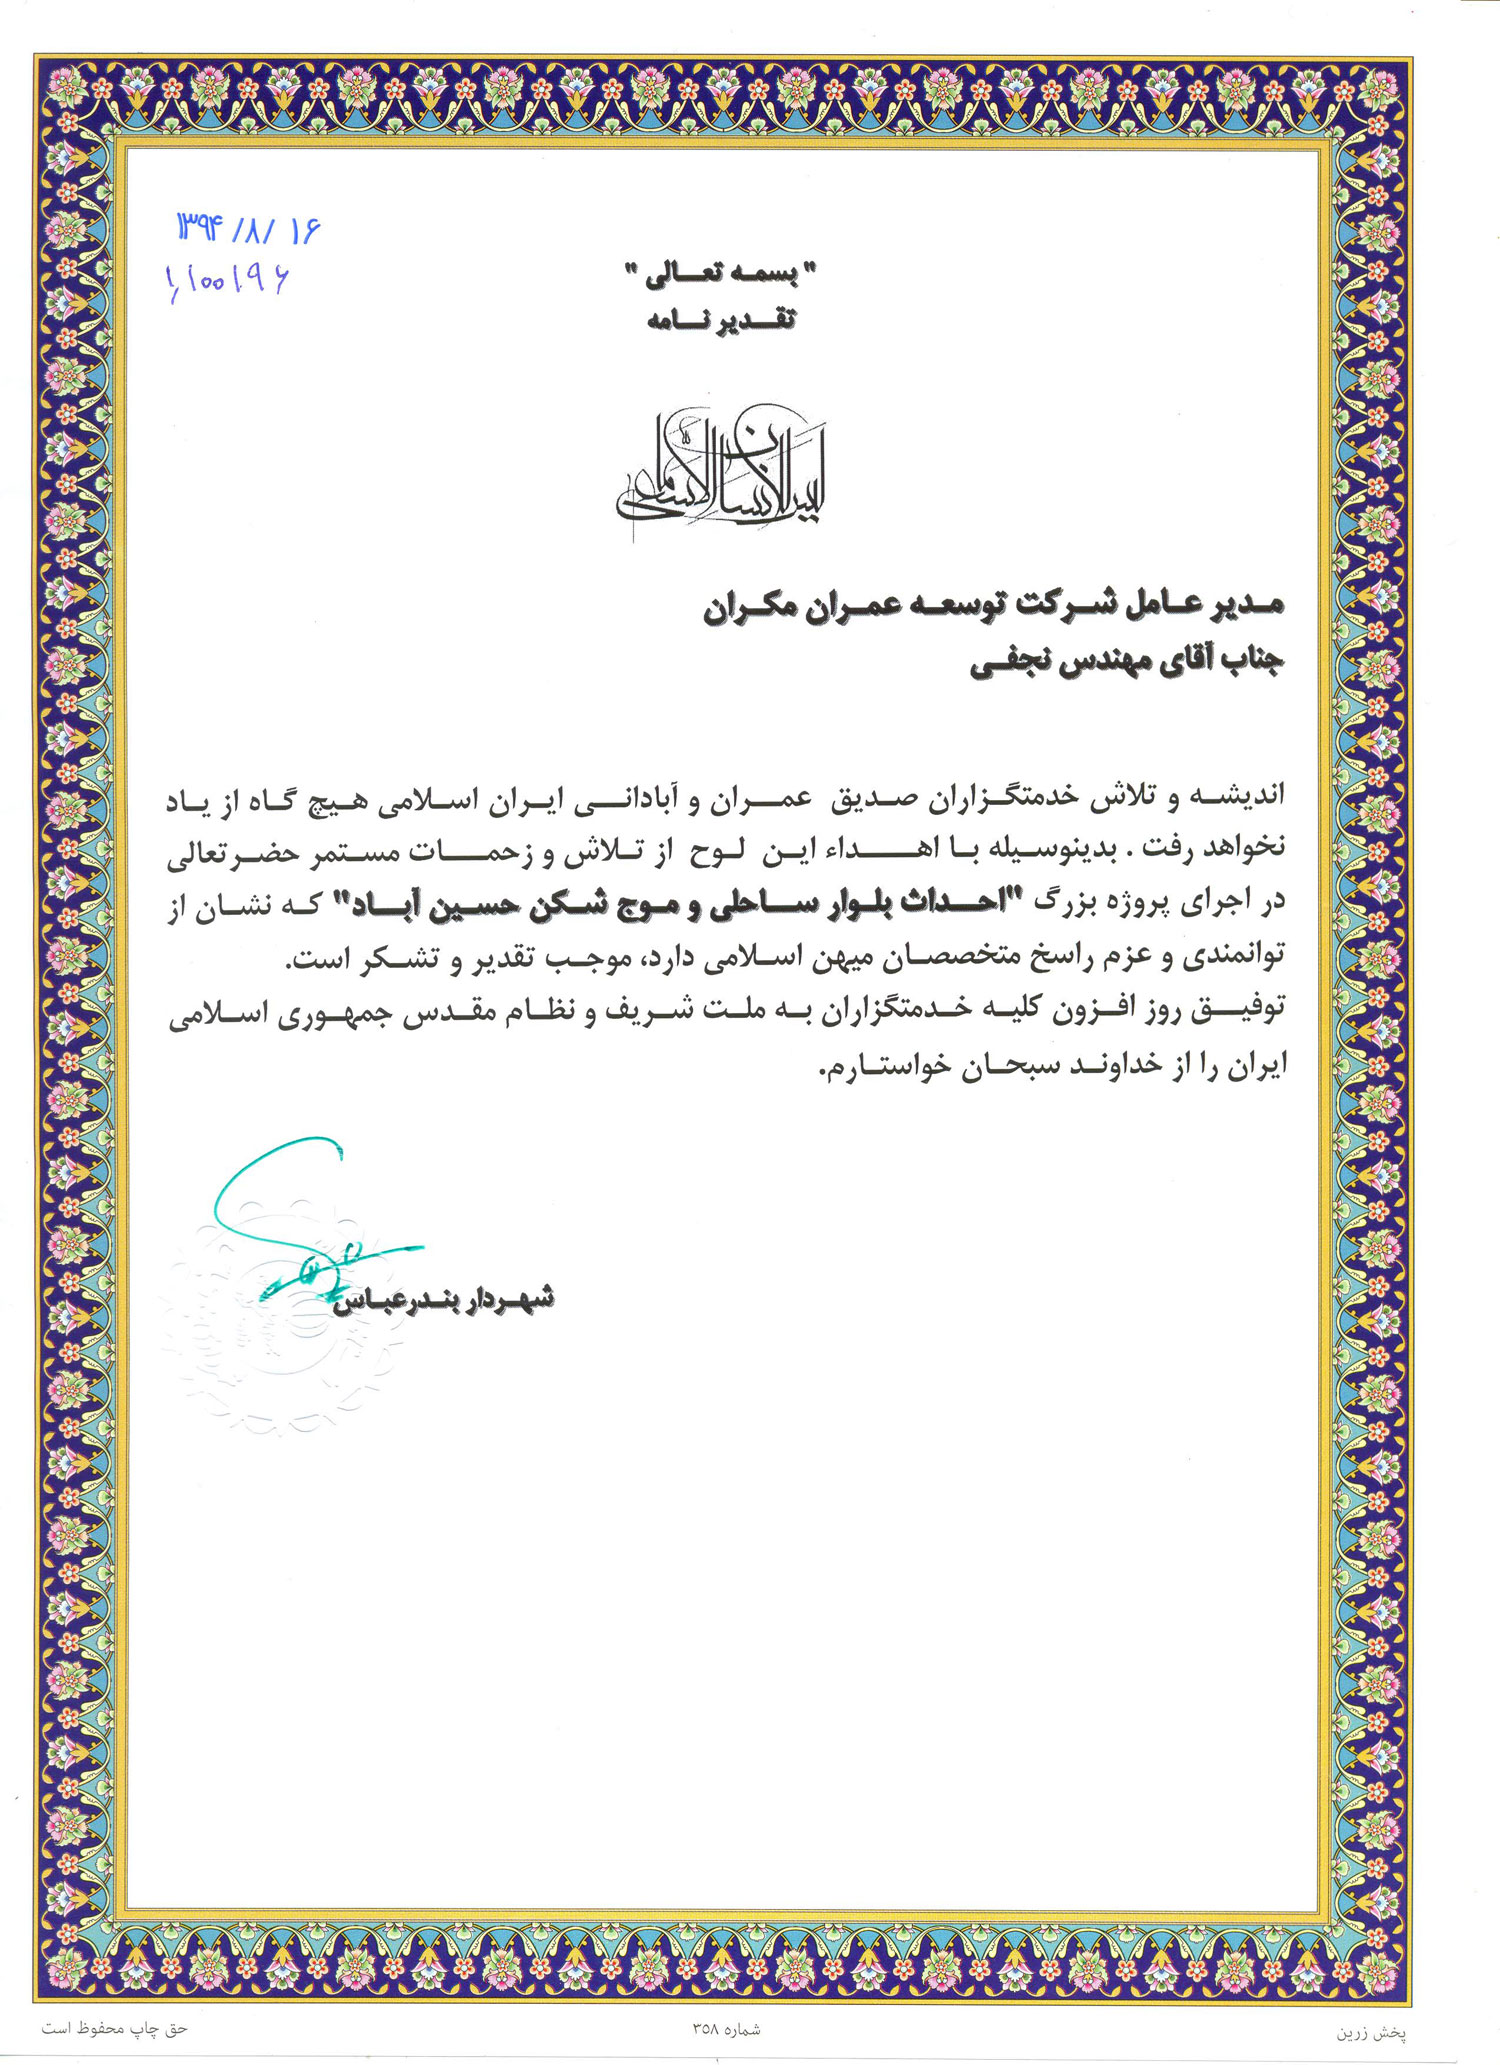 ۱۳۹۴/۸/۱۶
" بسمه تعالی "
تقدیر نامه
لیس للانسان الا ما سعی
مدیر عامل شرکت توسعه عمران مکران
جناب آقای مهندس نجفی
اندیشه و تلاش خدمتگزاران صدیق عمران و آبادانی ایران اسلامی هیچ گاه از یاد
نخواهد رفت . بدینوسیله با اهداء این لوح از تلاش و زحمات مستمر حضرتعالی
در اجرای پروژه بزرگ "احداث بلوار ساحلی و موج شکن حسین آباد" که نشان از
توانمندی و عزم راسخ متخصصان میهن اسلامی دارد، موجب تقدیر و تشکر است.
توفیق روز افزون کلیه خدمتگزاران به ملت شریف و نظام مقدس جمهوری اسلامی
ایران را از خداوند سبحان خواستارم.
شهردار بندرعباس
پخش زرین
شماره ۳۵۸
حق چاپ محفوظ است